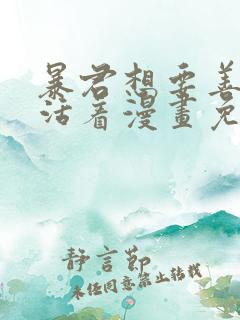 暴君想要善
活着漫畫免
靜言節
未经同意禁止转载